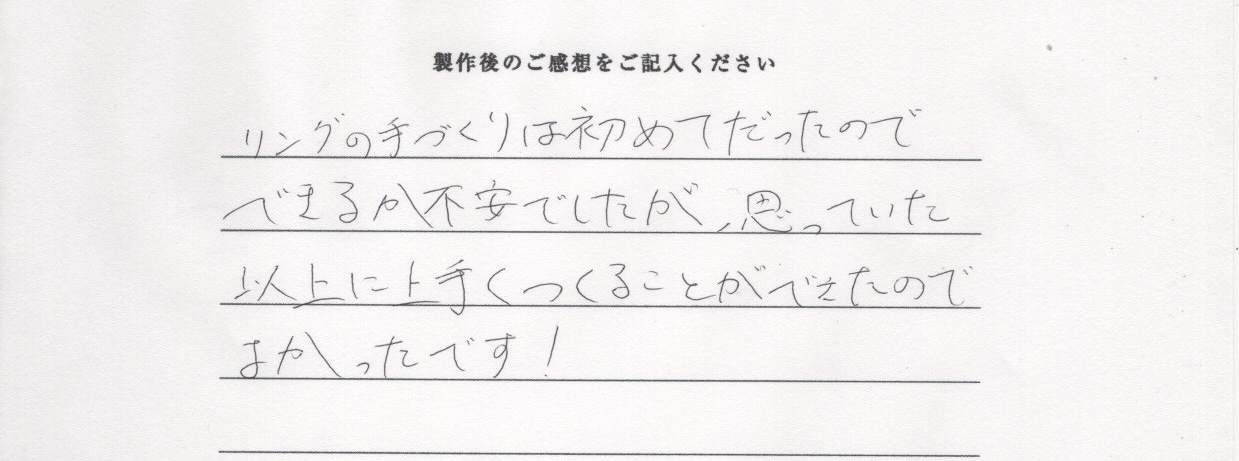 製作後のご感想をご記入ください
リングの手づくりは初めてだったので
できるか不安でしたが、思っていた
以上に上手くつくることができたので
よかったです！